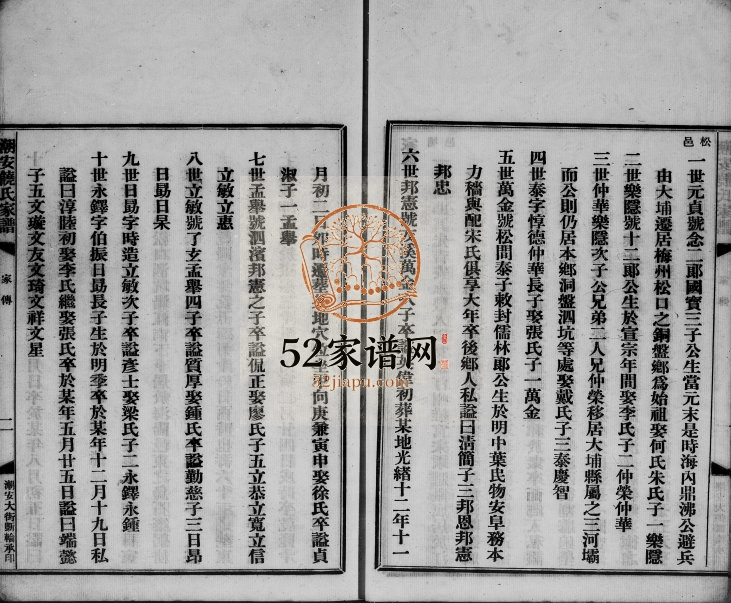 松邑
一世元貞號念二郎國賓三子公生當元末是時海內鼎沸公避兵
由大埔遷居梅州松口之銅盤鄉為始祖娶何氏朱氏子一樂隱
二世樂隱號十二郎公生於宣宗年間娶李氏子二仲榮仲華
三世仲華樂隱次子公兄弟二人兄仲榮移居大埔縣屬之三河壩
而公則仍居本鄉洞盤泗坑等處娶戴氏子三泰慶智
四世泰字惇德仲華長子娶張氏子一萬金
五世萬金號松間泰子敕封儒林郎公生於明中葉民物安阜務本
力穡與配宋氏俱享大年卒後鄉人私謚曰清簡子三邦恩邦憲
邦忠
六世邦憲號 溪萬金 子卒謚英偉初葬某地光緒十二年十一
月初二日卯時遷葬 地穴 向庚兼寅申娶徐氏卒謚貞
淑子一孟舉
七世孟舉號泗濱邦憲之子卒謚侃正娶廖氏子五立恭立寬立信
立敏立惠
八世立敏號了玄孟舉四子卒謚質厚娶鍾氏卒謚勤慈子三日昂
日勗日杲
九世日勗字時造立敏次子卒謚彥士娶梁氏子二永鐸永鍾
十世永鐸字伯振日勗長子生於明季卒於某年十二月十九日私
謚曰淳睦初娶李氏繼娶張氏卒於某年五月廿五日謚曰端懿
子五文璇文友文琦文祥文星
潮安饒氏家譜
家傳
潮安大街斯輪承印
52家谱网
52jiapu.com